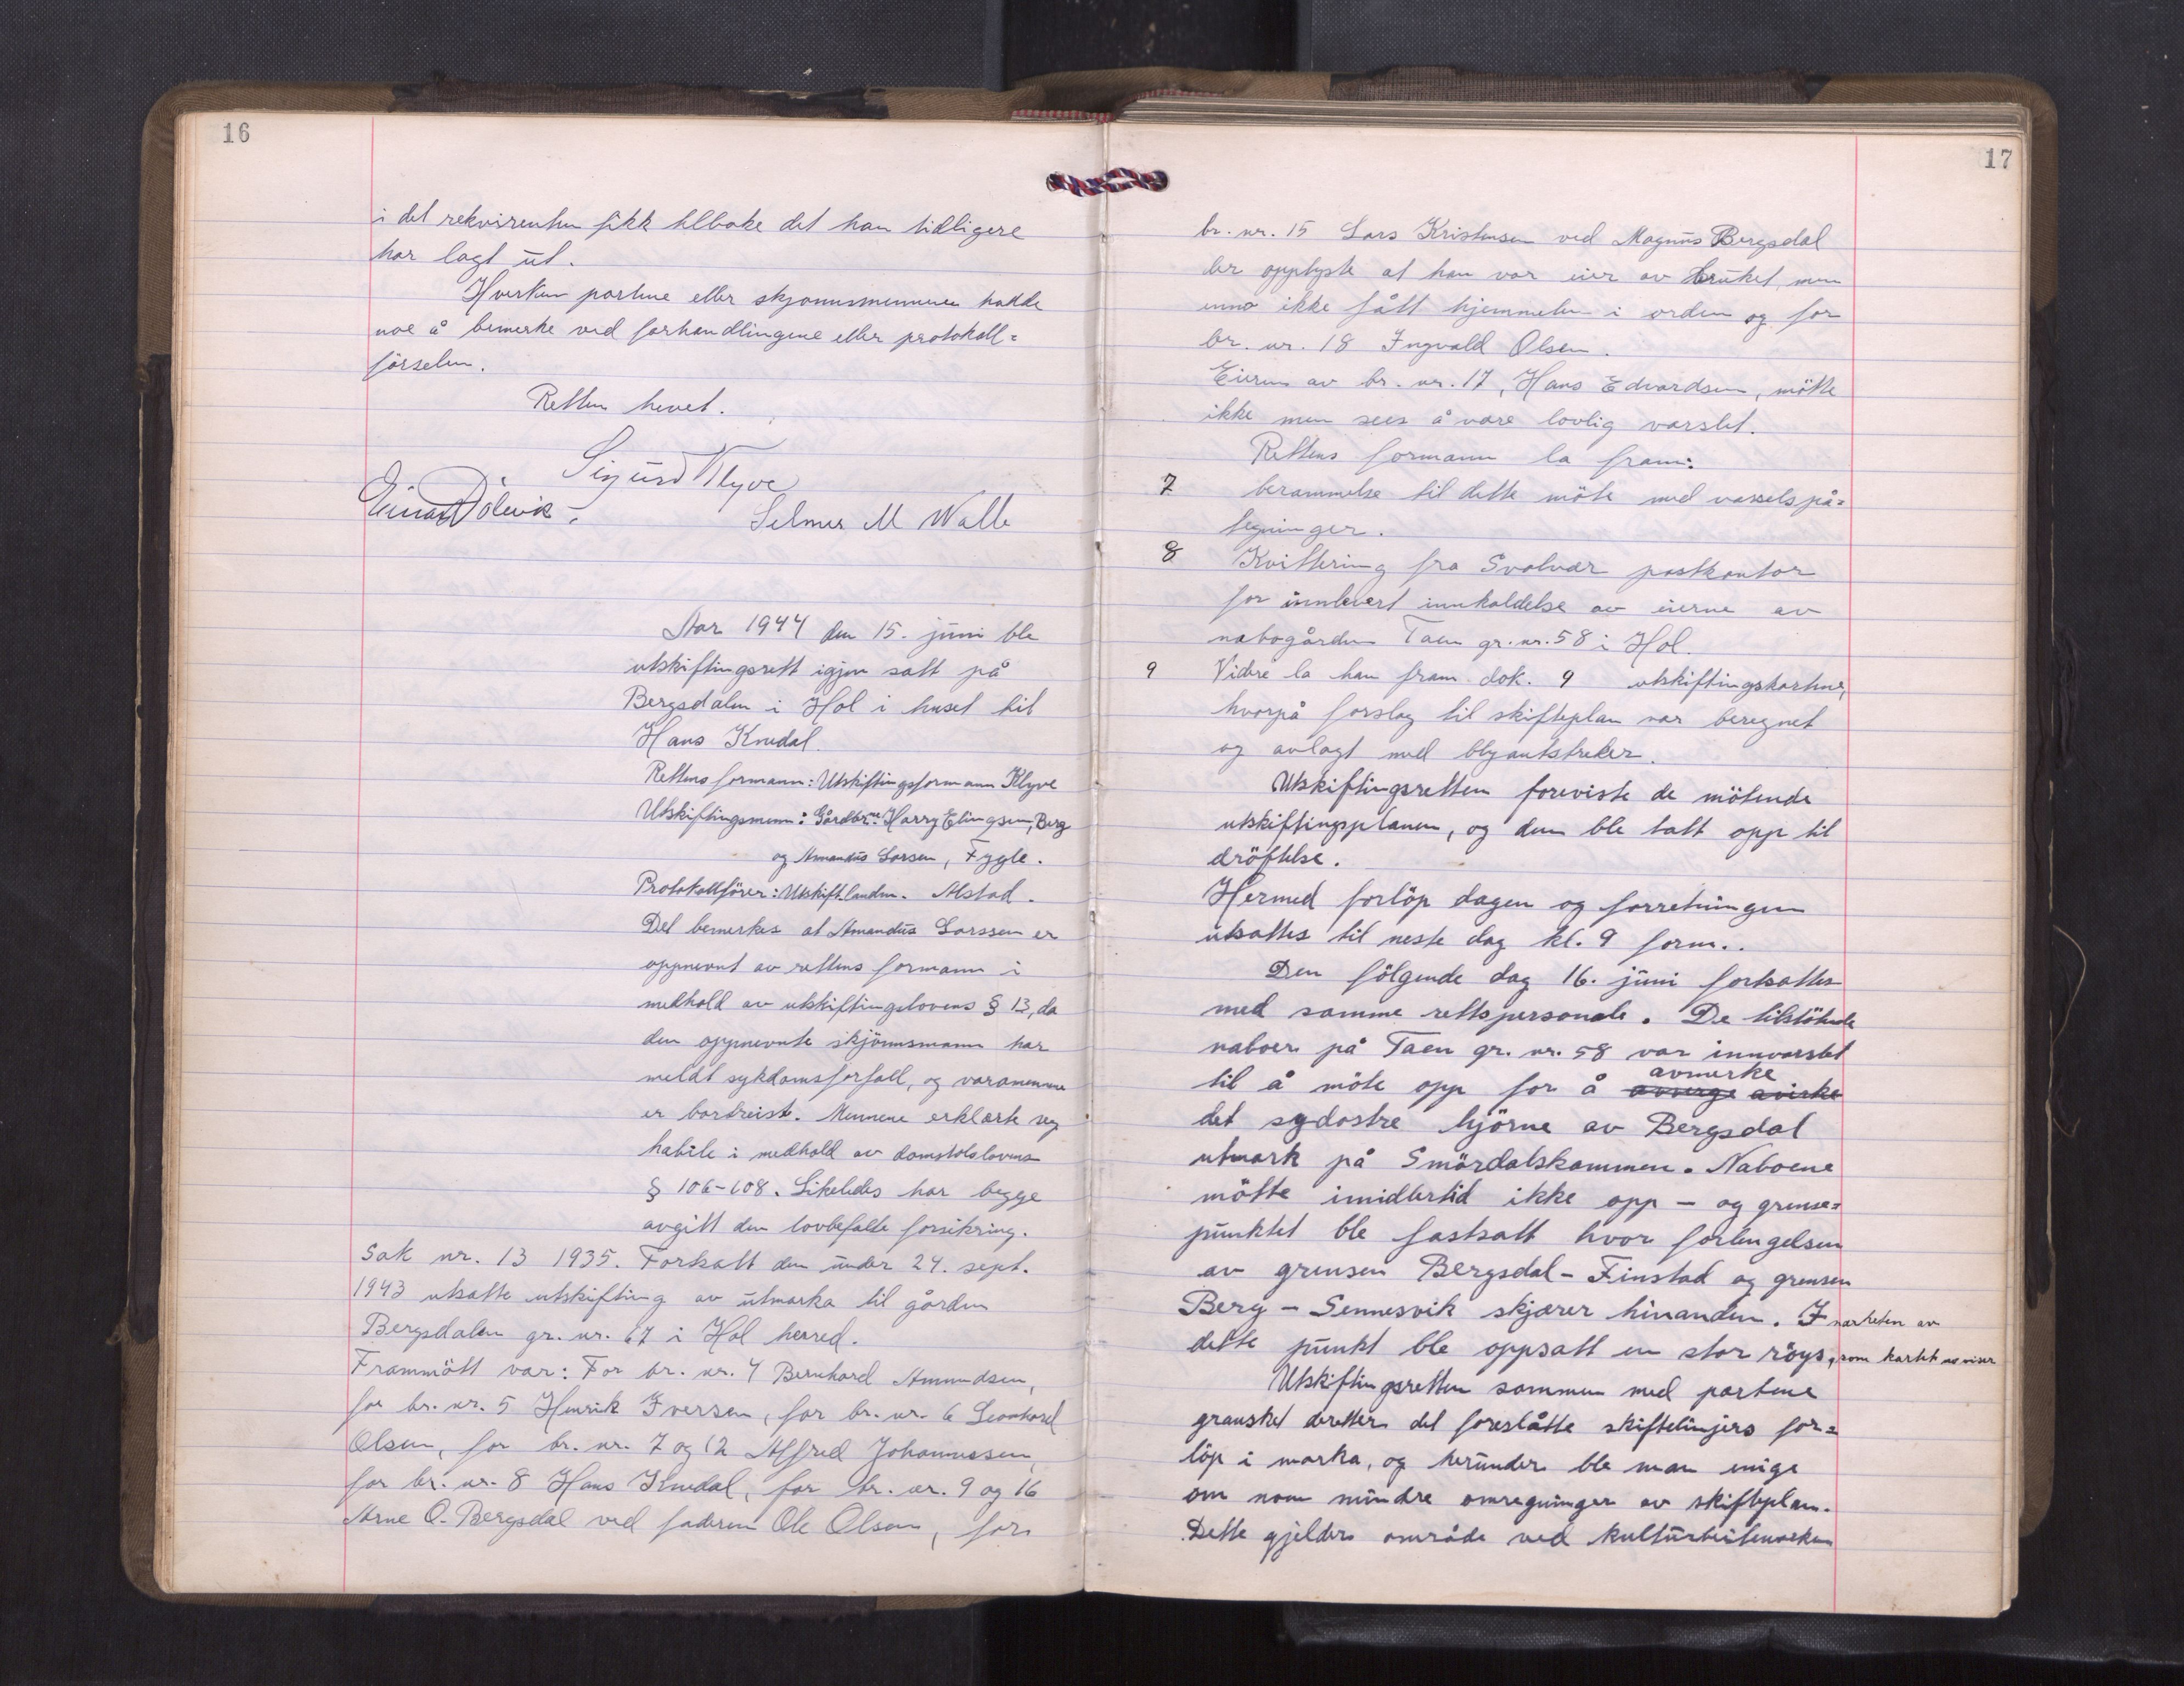 16
i det rekvirenten fikk tilbake det han tidligere
har lagt ut.
Hverken partene eller skjønnsmennene hadde
noe å bemerke ved forhandlingene eller protokoll=
förselen.
Retten hevet.
Sigurd Klyve
Einar Dölevik.
Selmer M Walle
Aar 1944 den 15. juni ble
utskiftingsrett igjen satt på
Bergsdalen i Hol i huset til
Hans Knedal.
Rettens formann: Utskiftingsformann Klyve
Utskiftingsmenn: Gårdbr.ne Harry Elingsen, Berg
og Amandus Larsen, Fygle.
Protokollförer: Utskift.landm. Alstad.
Det bemerkes at Amandus Larssen er
oppnevnt av rettens formann i
medhold av utskiftingslovens § 13, da
den oppnevnte skjönnsmann har
meldt sykdomsforfall, og varamennene
er bortreist. Mennene erklærte seg
habile i medhold av domstolslovens
§ 106-108. Likeledes har begge
avgitt den lovbefalte forsikring.
Sak nr. 13 1935. Fortsatt den under 24. sept.
1943 utsatte utskifting av utmarka til gården
Bergsdalen gr. nr. 67 i Hol herred.
Frammött var: For br. nr. 4 Bernhard Amundsen,
for br. nr. 5 Henrik Iversen, for br. nr. 6 Leonhard
Olsen, for br. nr. 7 og 12 Alfred Johannessen,
for br. nr. 8 Hans Knedal, for br. nr. 9 og 16
Arne O. Bergsdal ved faderen Ole Olsen, for
17
br. nr. 15 Lars Kristensen ved Magnus Bergsdal
der opplyste at han var eier av bruket, men
ennå ikke fått hjemmelen i orden og for
br. nr. 18 Ingvald Olsen.
Eieren av br. nr. 17, Hans Edvardsen, mötte
ikke men sees å være lovlig varslet.
Rettens formann la fram:
7 berammelse til dette möte med varselspå=
tegninger.
8 Kvittering fra Svolvær postkontor
for innlevert innkaldelse av eierne av
nabogården Taen gr. nr. 58 i Hol.
9 Videre la han fram dok. 9 utskiftingskartene,
hvorpå forslag til skifteplan var beregnet
og avlagt med blyantstreker.
Utskiftingsretten foreviste de mötende
utskiftingsplanen, og den ble tatt opp til
dröftelse.
Hermed forlöp dagen og forretningen
utsattes til neste dag kl. 9 form..
Den fölgende dag 16. juni fortsattes
med samme rettspersonale. De tilstötende
naboer på Taen gr. nr. 58 var innvarslet
til å möte opp for å avverge avirke avmerke
det sydostre hjörne av Bergsdal
utmark på Smördalskammen. Naboene
mötte imidlertid ikke opp - og grense=
punktet ble fastsatt hvor forlengelsen
av grensen Bergsdal - Finstad og grensen
Berg - Sennesvik skjærer hinanden. I nærheten av
dette punkt ble oppsatt en stor röys, som kartet utviser
Utskiftingsretten sammen med partene
gransket deretter det foreslåtte skiftelinjers for=
löp i marka, og herunder ble man enige
om noen mindre omregninger av skifteplan.
Dette gjelder område ved kulturbeitemarken